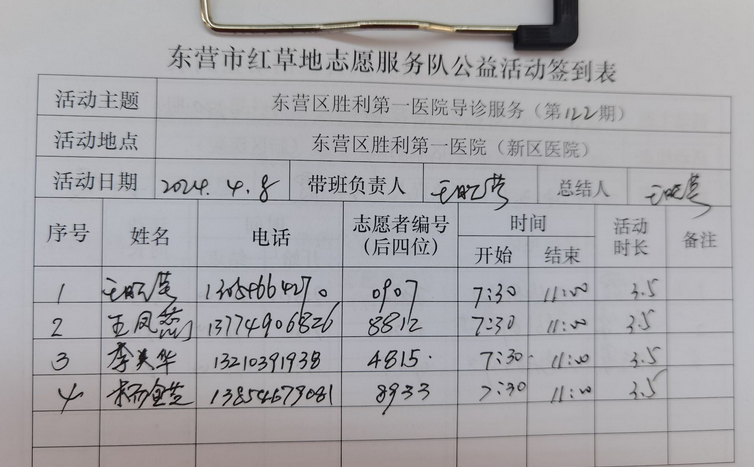 东营市红草地志愿服务队公益活动签到表
活动主题 东营区胜利第一医院导诊服务（第122期）
活动地点 东营区胜利第一医院（新区医院）
活动日期 2024.4.8 带班负责人 总结人
序号 姓名 电话 志愿者编号（后四位） 时间 开始 结束 活动时长 备注
1 13054664270 0907 7:30 11:00 3.5
2 王凤蕊 13774906826 8812 7:30 11:00 3.5
3 李美华 13210391938 4815 7:30 11:00 3.5
4 13854679081 8933 7:30 11:00 3.5